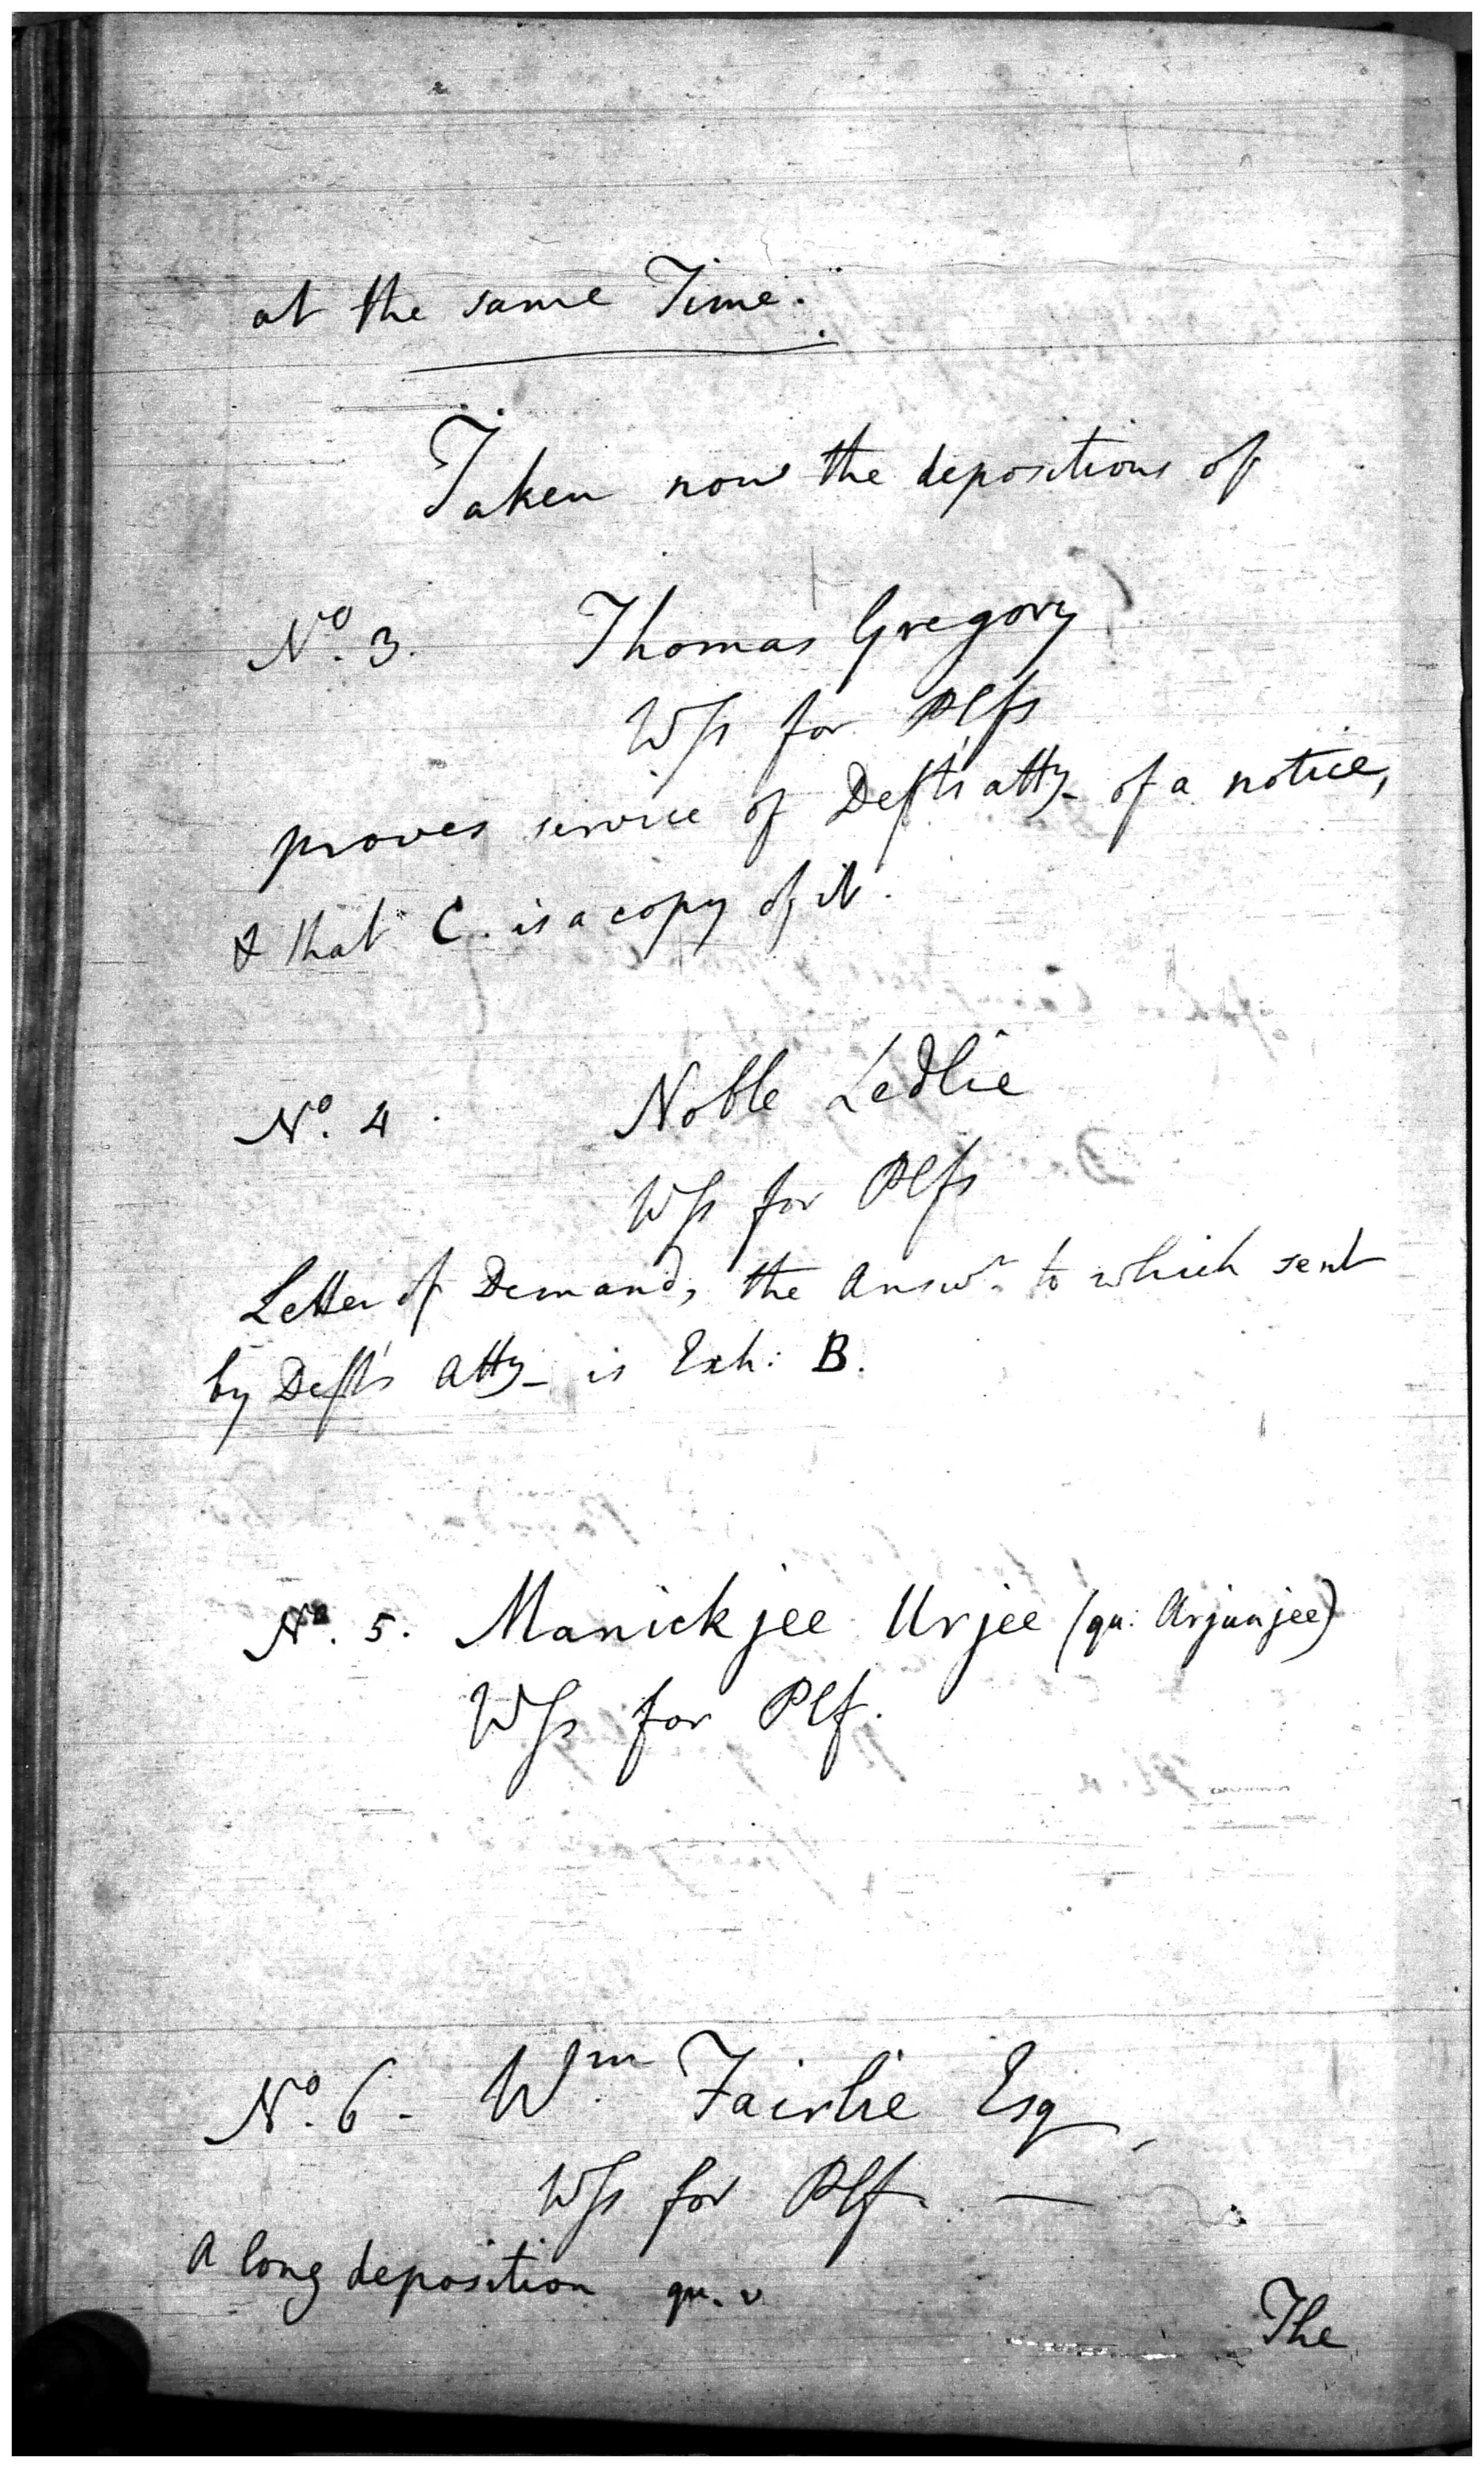 at the same Time.
Taken now the depositions of
No. 3. Thomas Gregory
Wss for Plfs
proves service of Deft's atty of a notice,
& that C. is a copy of it.
No. 4. Noble Ledlie
Wss for Plfs
Letter of Demand, the Answr. to which sent
by Deft's Atty is Exh: B.
No. 5. Manickjee Urjee (qu: Arjunjee)
Wss for Plf.
No. 6 - Wm Fairlie Esq
Wss for Plf. —
A long deposition qu. v
The